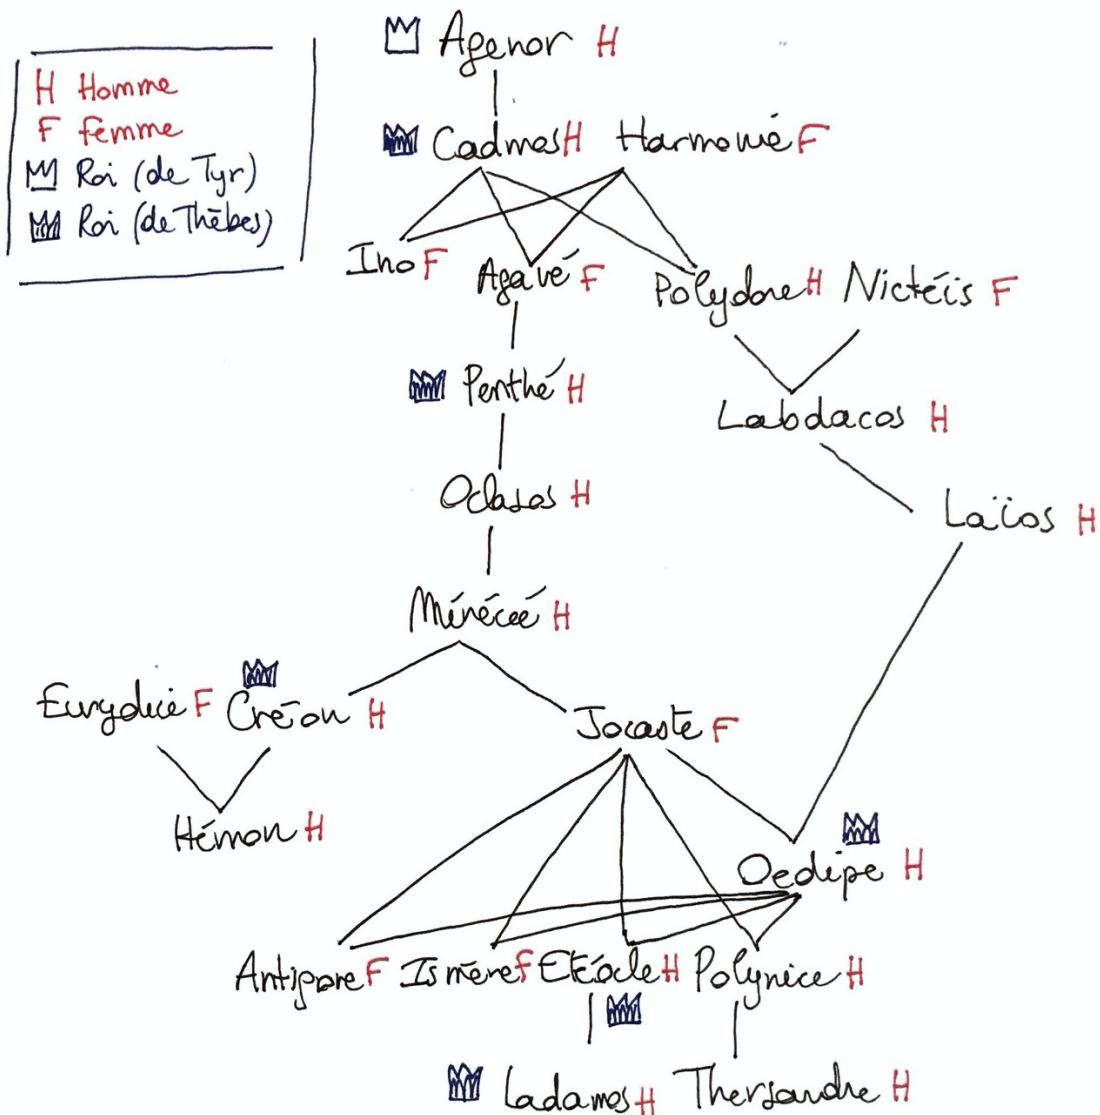 H Homme
F femme
Roi (de Tyr)
Roi (de Thèbes)
Agenor H
Cadmos H Harmonie F
Ino F Agavé F Polydore H Nictéïs F
Penthé H
Labdacos H
Oclasos H
Laïos H
Ménécée H
Eurydice F Créon H Jocaste F
Hémon H
Oedipe H
Antigone F Ismène F Etéocle H Polynice H
Ladamos H Thersandre H